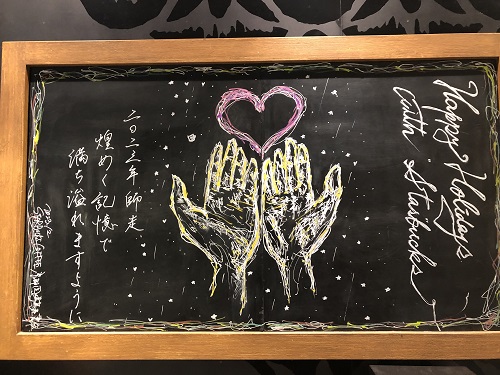 Happy Holidays
with Starbucks
二〇二二年師走
煌めく記憶で
満ち溢れますように